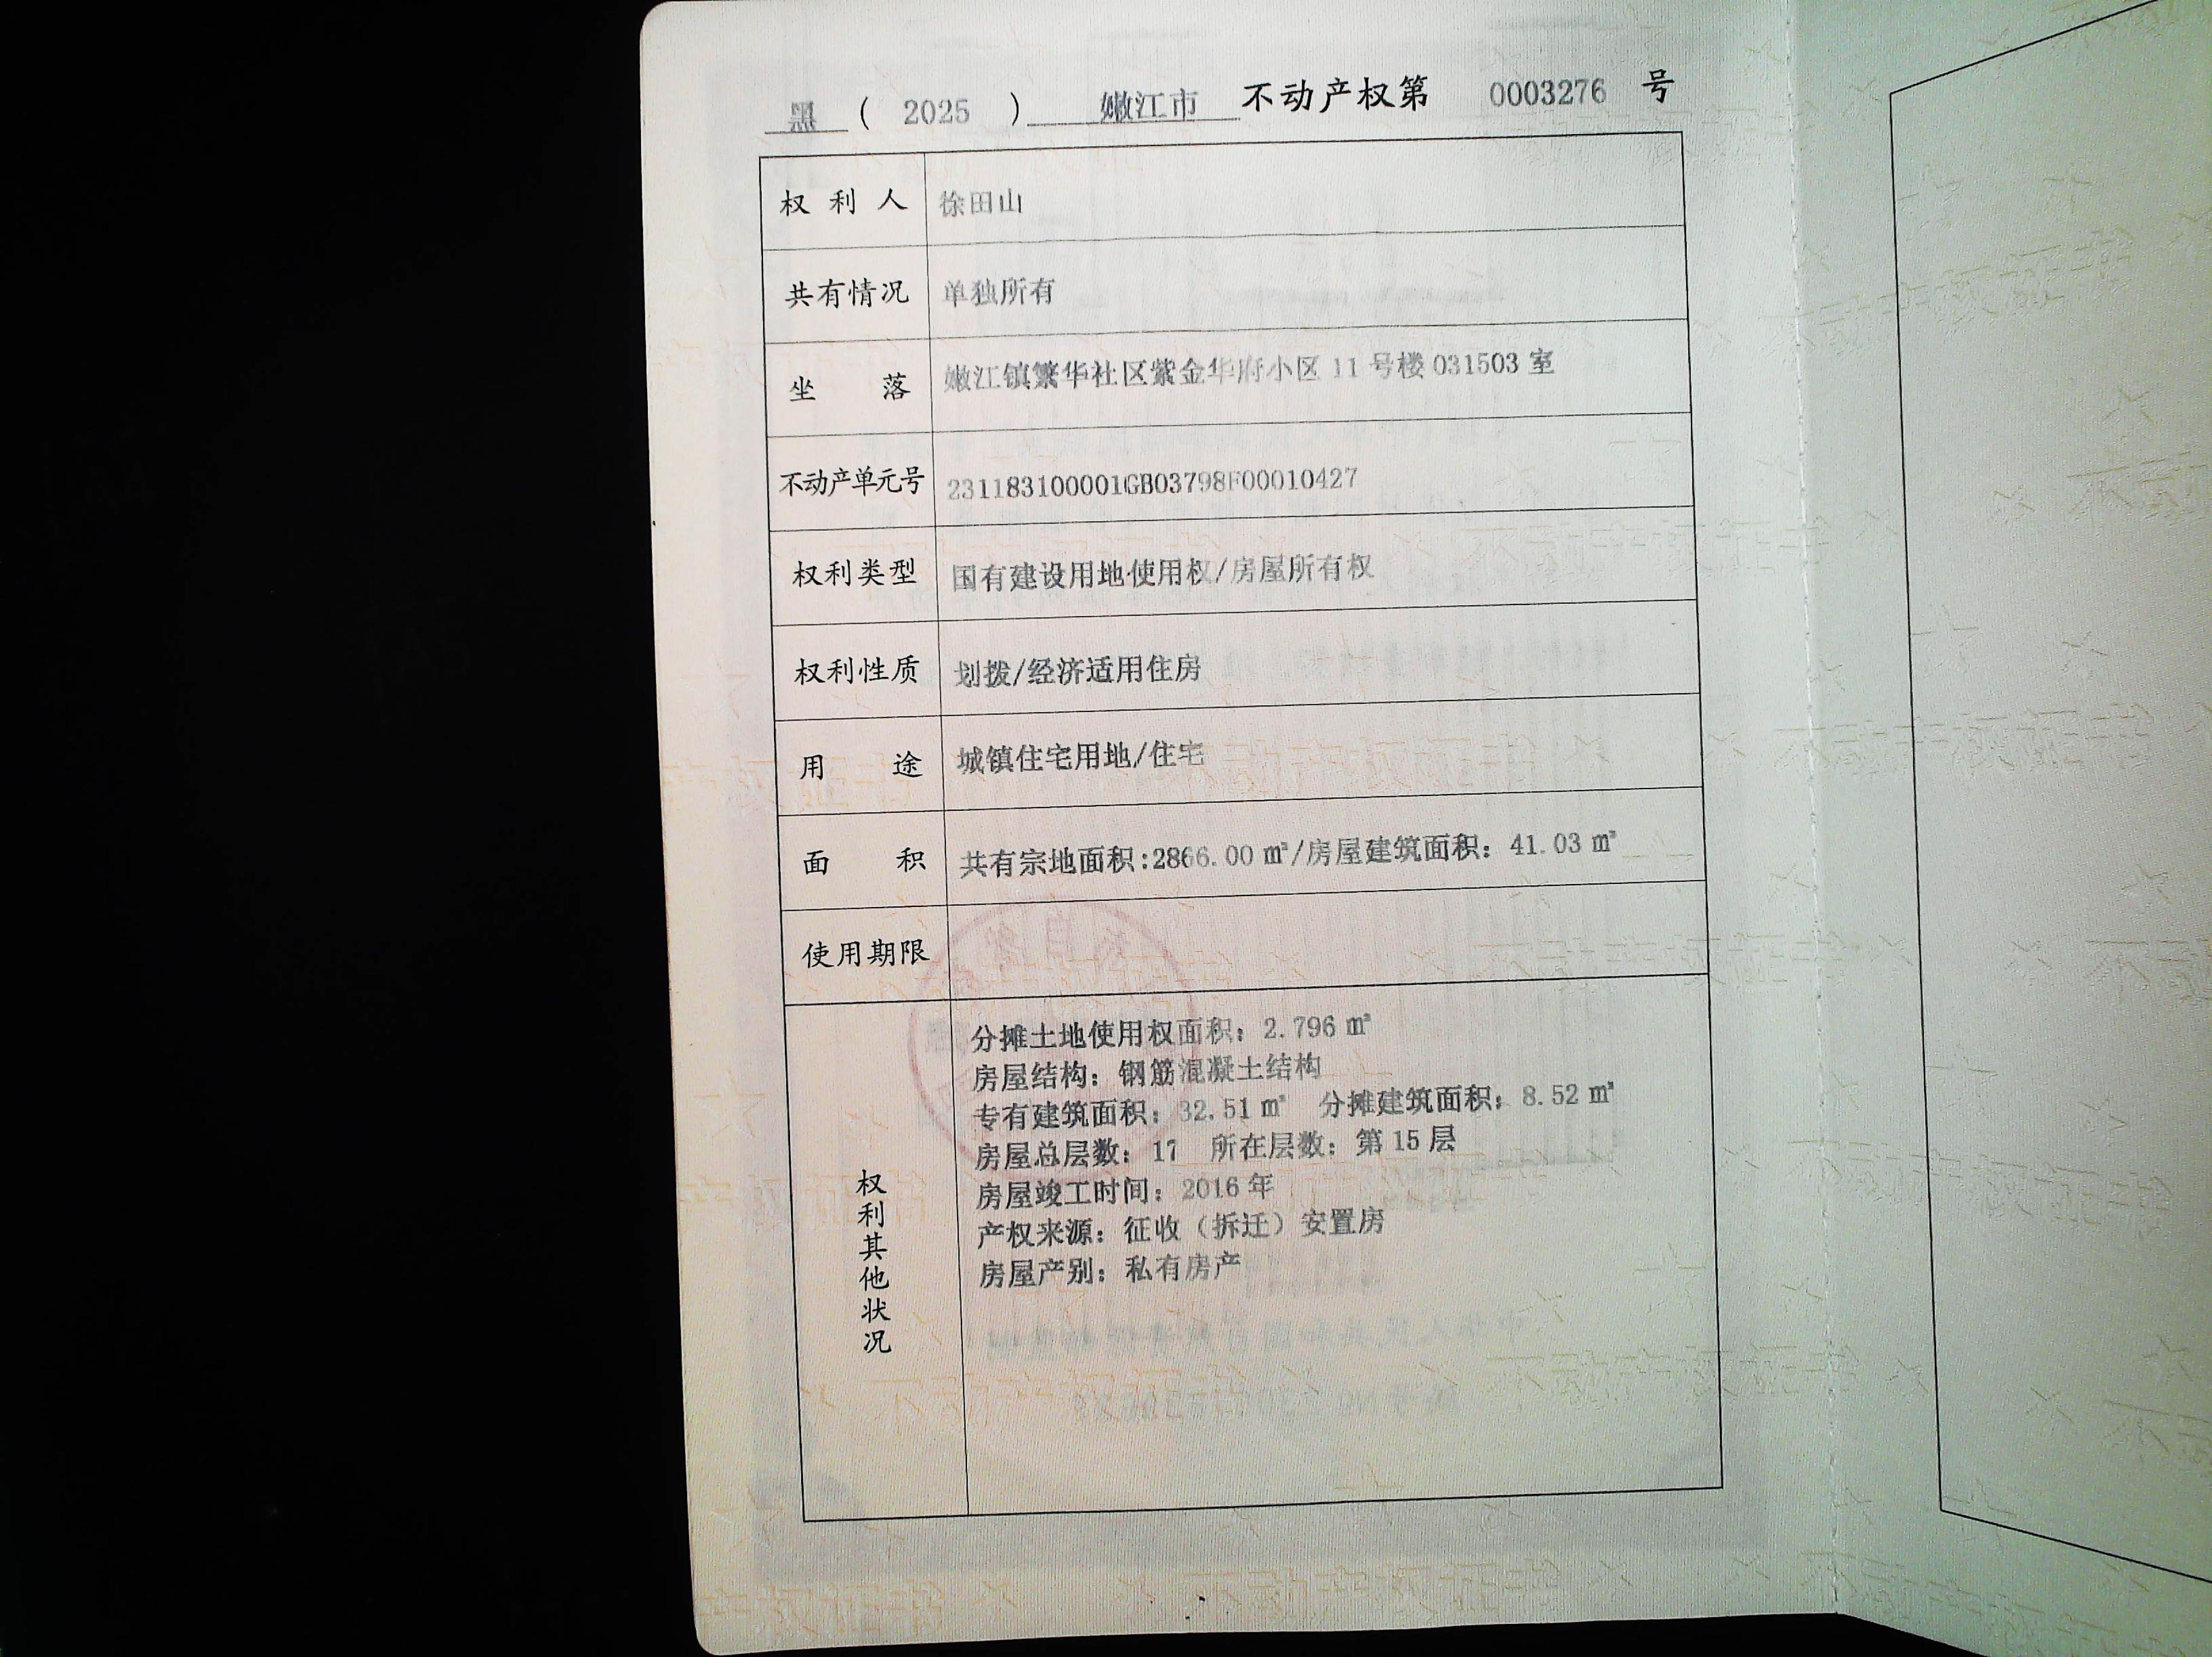 黑 ( 2025 ) 嫩江市 不动产权第 0003276 号
权利人 徐田山
共有情况 单独所有
坐落 嫩江镇繁华社区紫金华府小区 11 号楼 031503 室
不动产单元号 231183100001GB03798F00010427
权利类型 国有建设用地使用权/房屋所有权
权利性质 划拨/经济适用住房
用途 城镇住宅用地/住宅
面积 共有宗地面积:2866.00 ㎡/房屋建筑面积：41.03 ㎡
使用期限
权利其他状况
分摊土地使用权面积：2.796 ㎡
房屋结构：钢筋混凝土结构
专有建筑面积：32.51 ㎡ 分摊建筑面积：8.52 ㎡
房屋总层数：17 所在层数：第 15 层
房屋竣工时间：2016 年
产权来源：征收（拆迁）安置房
房屋产别：私有房产